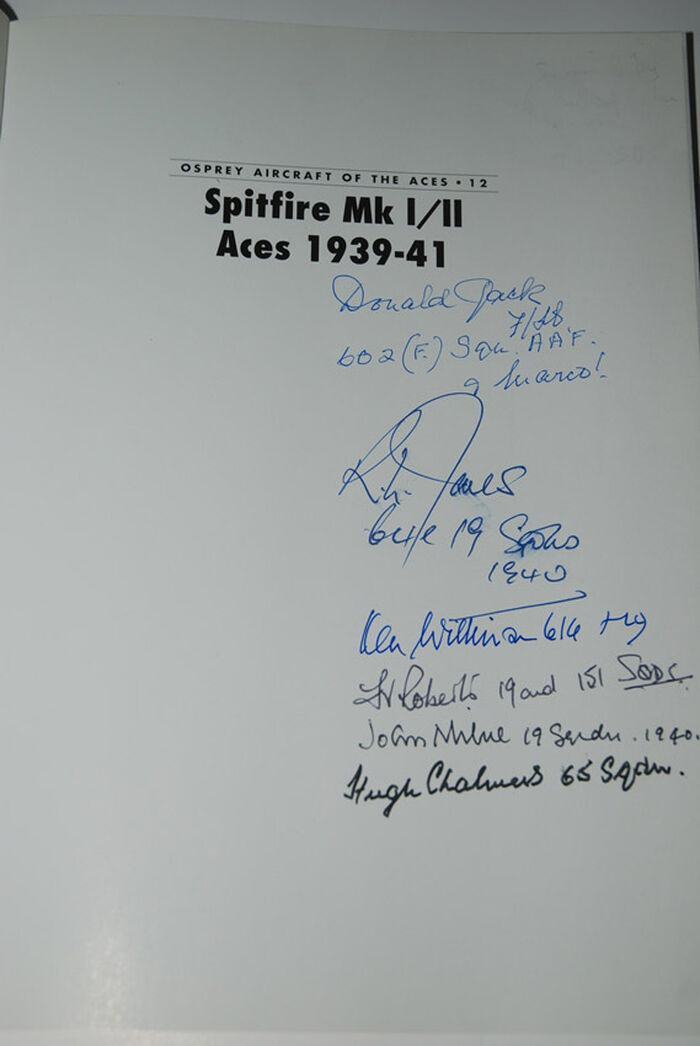 OSPREY AIRCRAFT OF THE ACES • 12
Spitfire Mk I/II
Aces 1939-41
Donald Jack
602 (F.) Sqn. AAF.
64 19 Sqdns
1940
Ken Wilkinson 616 + 19
Roberts 19 and 151 Sqds.
John Milne 19 Sqdn. 1940.
Hugh Chalmers 65 Sqdn.